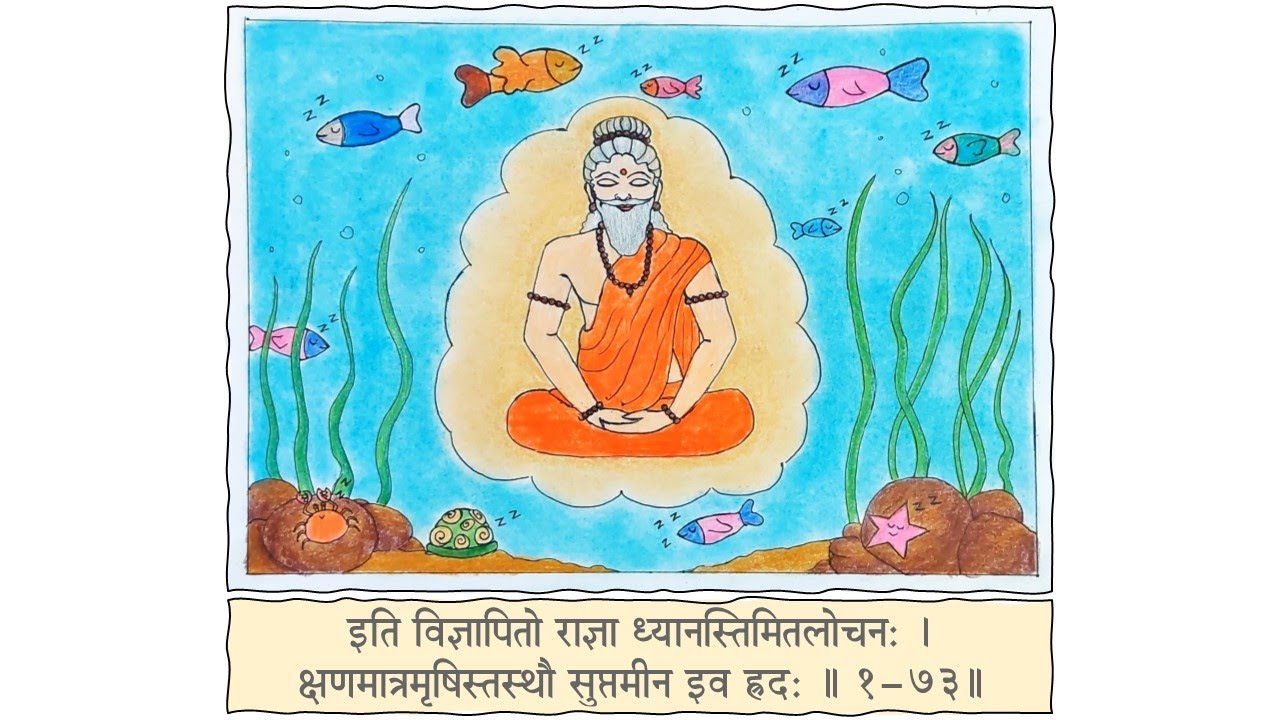 z z
z z
z z
z z
z z
z z
z z
z z
z z
z z
z z
इति विज्ञापितो राज्ञा ध्यानस्तिमितलोचनः ।
क्षणमात्रमृषिस्तस्थौ सुप्तमीन इव ह्रदः ॥ १–७३॥